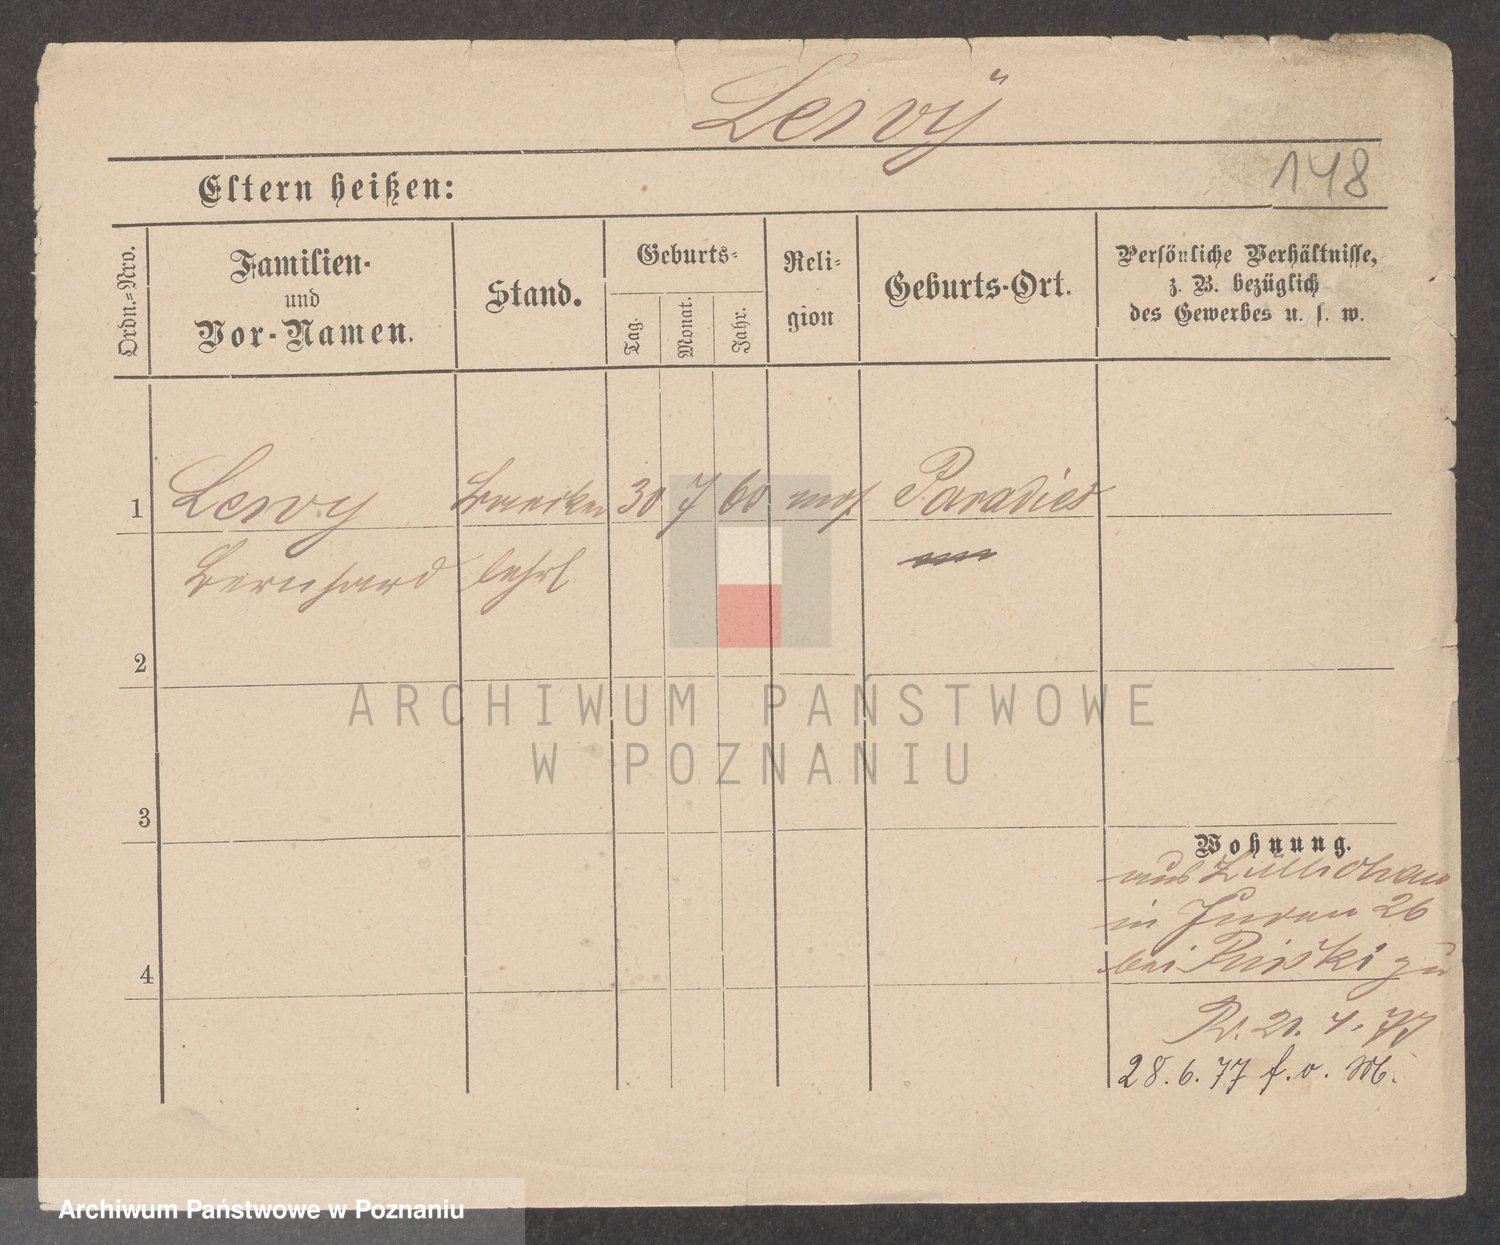 Lewÿ
148
Eltern heißen:
Ordn.=Nro.
Familien-
und
Vor-Namen.
Stand.
Geburts-
Tag.
Monat.
Jahr.
Reli-
gion
Geburts-Ort.
Persönliche Verhältnisse,
z. B. bezüglich
des Gewerbes u. s. w.
1 Lewy 30 7 60 mos. Paradies
Bernhard lehrl
2
3
4
Wohnung.
aus Züllichau
in 26
bei zu
28.6.77 f. o. M.
ARCHIWUM PAŃSTWOWE
W POZNANIU
Archiwum Państwowe w Poznaniu